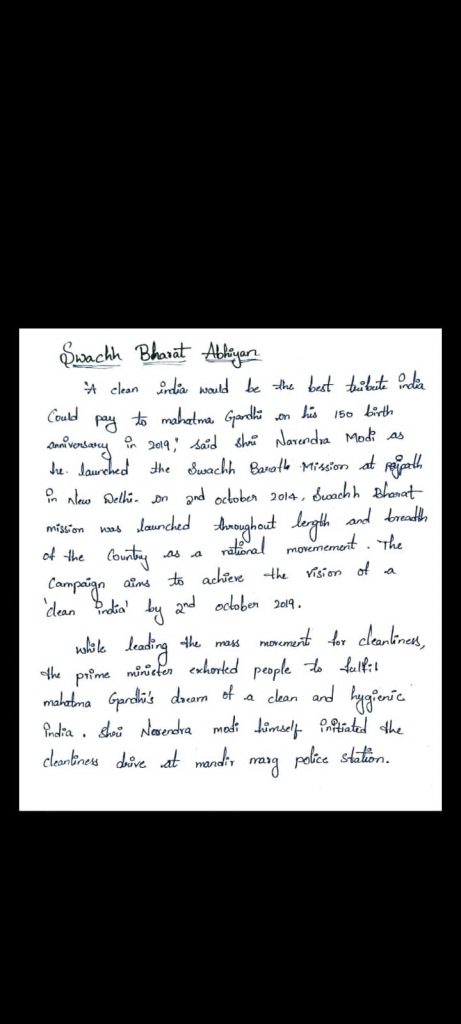 Swachh Bharat Abhiyan
"A clean india would be the best tribute india
Could pay to mahatma Gandhi on his 150 birth
anniversary in 2019," said Shri Narendra Modi as
he launched the Swachh Barath Mission at rajpath
in New Delhi. on 2nd october 2014, Swachh Bharat
mission was launched throughout length and breadth
of the Country as a national movemement. The
Campaign aims to achieve the vision of a
'clean india' by 2nd october 2019.
while leading the mass movement for cleanliness,
the prime minister exhorted people to fulfil
mahatma Gandhi's dream of a clean and hygienic
india. Shri Narendra modi himself initiated the
cleanliness drive at mandir marg police station.